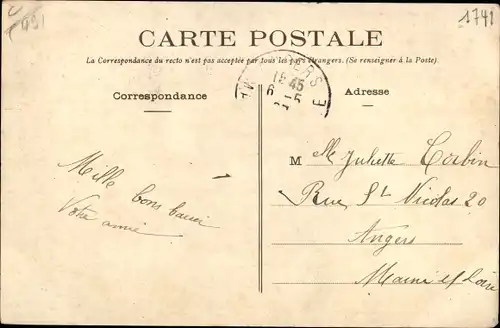 1741
491
CARTE POSTALE
La Correspondance du recto n'est pas acceptée par tous les pays étrangers. (Se renseigner à la Poste).
ERS
18 45
6
5
E
Correspondance
Adresse
Mille bons baisers
Votre amie
Mlle Juliette Corbin
Rue St Nicolas 20
Angers
Maine et Loire